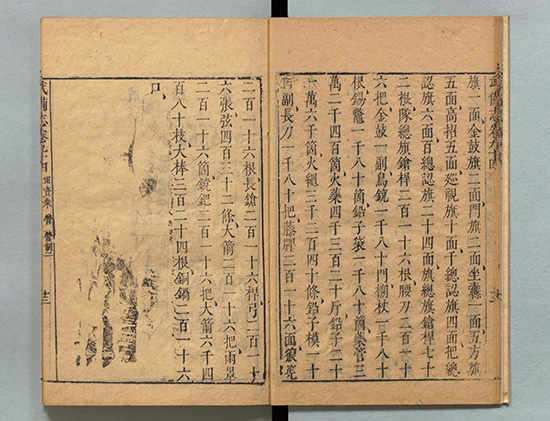 旗一面金鼓旗二面門旗二面坐纛一面五方旗
五面高招五面廵視旗十面千總認旗四面把總
認旗六面百總認旗二十四面旗總旗鎗桿七十
二根隊總旗鎗桿二百一十六根腰刀二百一十
六把金鼓一副鳥銃一千八十門搠杖一千八十
根錫鼈一千八十箇鉛子袋一千八十箇藥管三
萬二千四百箇火藥四千三百二十斤鉛子二十
一萬六千箇火繩三千二百四十條鉛子模一十
副長刀一千八十把藤牌二百一十六面狼筅
二百一十六根長鎗二百一十六桿弓二百一十
六張弦四百三十二條大箭二百一十六把雨罩
二百一十六箇鏜鈀二百一十六把火箭六千四
百八十枝大棒三百二十四根銅鍋二百一十六
口
武備志卷九十四 軍資乘 營 營制二 十三